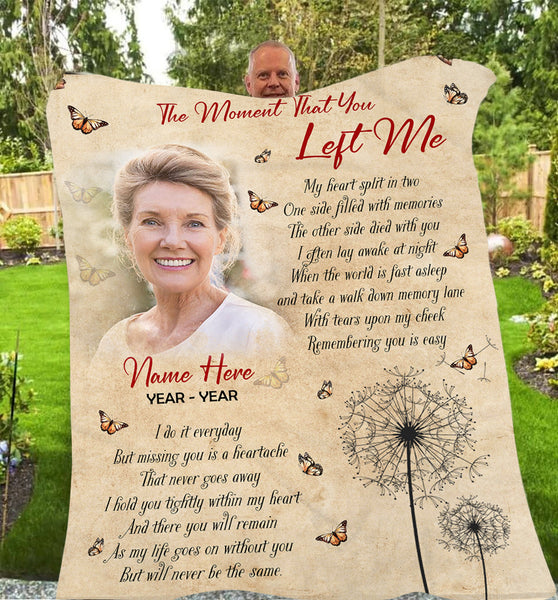 The Moment That You
Left Me
My heart split in two
One side filled with memories
The other side died with you
I often lay awake at night
When the world is fast asleep
and take a walk down memory lane
With tears upon my cheek
Remembering you is easy
Name Here
YEAR - YEAR
I do it everyday
But missing you is a heartache
That never goes away
I hold you tightly within my heart
And there you will remain
As my life goes on without you
But will never be the same.